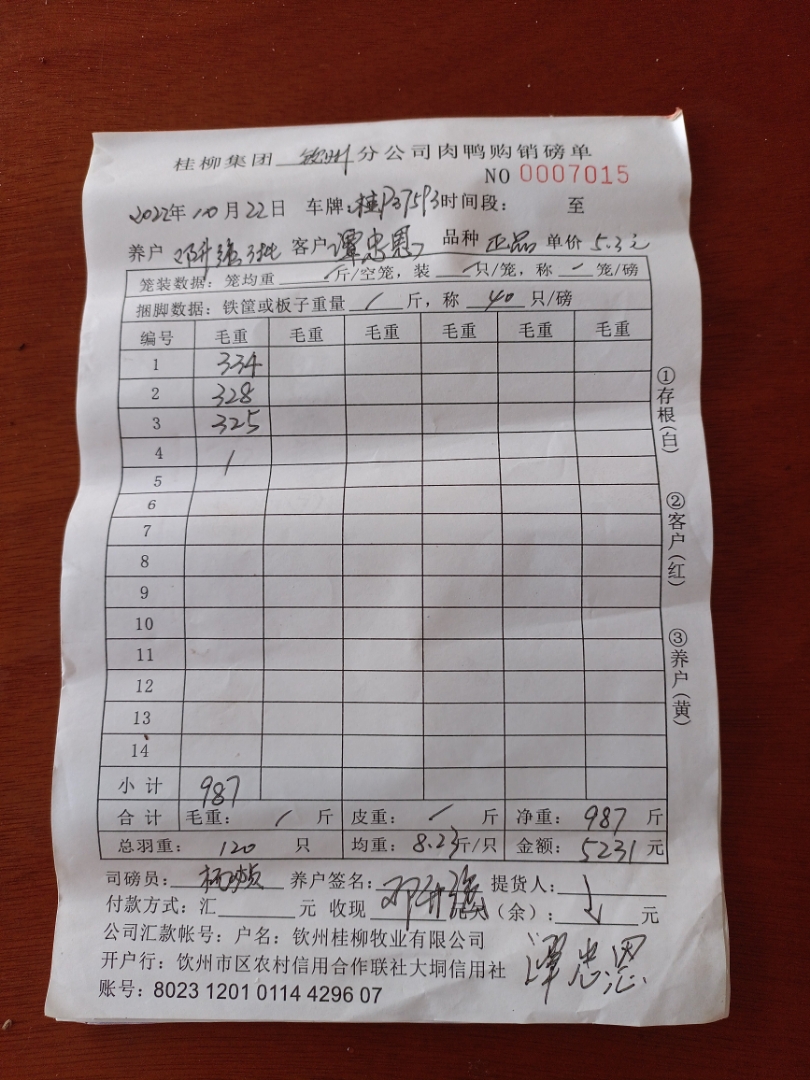 桂柳集团 钦州 分公司肉鸭购销磅单
NO 0007015
2022年 10月 22日 车牌: 桂P37593 时间段: 至
养户 邓升强 客户 谭忠恩 品种 正品 单价 5.3元
笼装数据: 笼均重 / 斤/空笼, 装 / 只/笼, 称 / 笼/磅
捆脚数据: 铁筐或板子重量 / 斤, 称 40 只/磅
编号 毛重 毛重 毛重 毛重 毛重 毛重
1 334
2 328
3 325
4 /
5
6
7
8
9
10
11
12
13
14
小计 987
合计 毛重: / 斤 皮重: / 斤 净重: 987 斤
总羽重: 120 只 均重: 8.23斤/只 金额: 5231 元
司磅员: 养户签名: 邓升强 提货人:
付款方式: 汇 元 收现 元欠(余): 元
公司汇款帐号: 户名: 钦州桂柳牧业有限公司
谭忠恩
开户行: 钦州市区农村信用合作联社大垌信用社
账号: 8023 1201 0114 4296 07
①存根(白)
②客户(红)
③养户(黄)